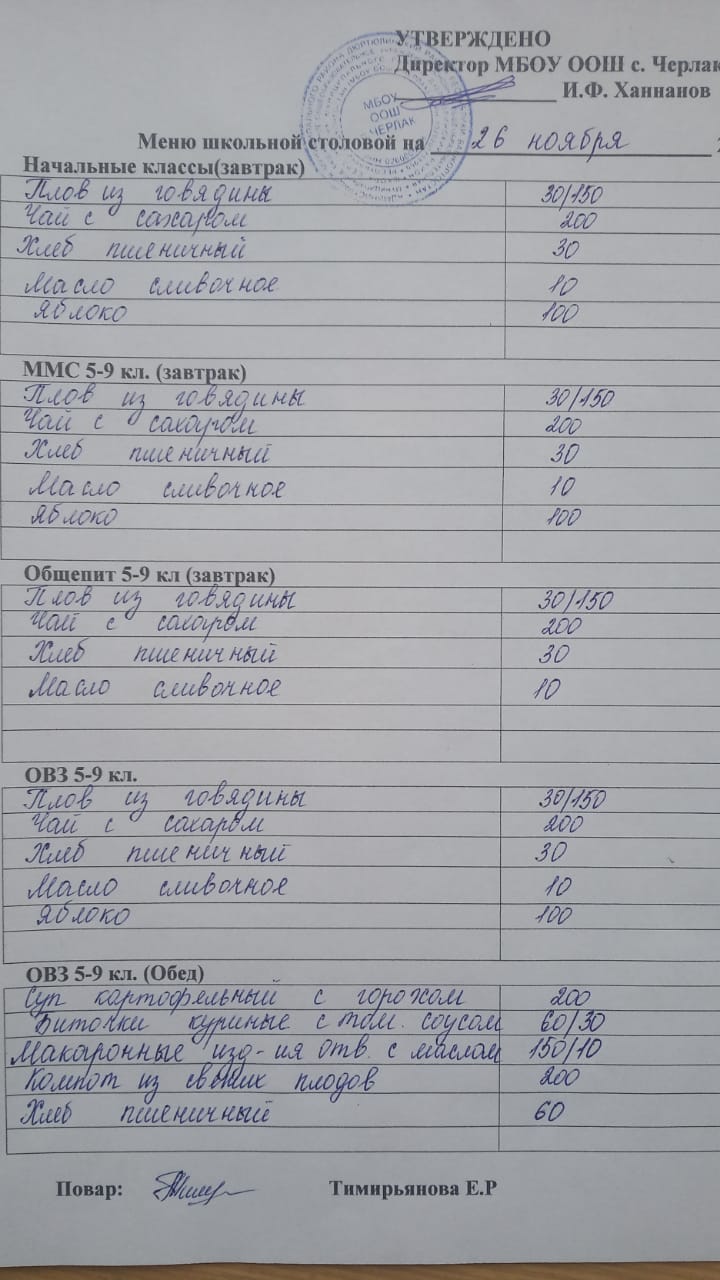 УТВЕРЖДЕНО
Директор МБОУ ООШ с. Черлак
И.Ф. Ханнанов
МБОУ
ООШ
ЧЕРЛАК
Меню школьной столовой на 26 ноября
Начальные классы(завтрак)
Плов из говядины 30/150
Чай с сахаром 200
Хлеб пшеничный 30
Масло сливочное 10
Яблоко 100
ММС 5-9 кл. (завтрак)
Плов из говядины 30/150
Чай с сахаром 200
Хлеб пшеничный 30
Масло сливочное 10
Яблоко 100
Общепит 5-9 кл (завтрак)
Плов из говядины 30/150
Чай с сахаром 200
Хлеб пшеничный 30
Масло сливочное 10
ОВЗ 5-9 кл.
Плов из говядины 30/150
Чай с сахаром 200
Хлеб пшеничный 30
Масло сливочное 10
Яблоко 100
ОВЗ 5-9 кл. (Обед)
Суп картофельный с горохом 200
Биточки куриные с том. соусом 60/30
Макаронные изд-ия отв. с маслом 150/10
Компот из свежих плодов 200
Хлеб пшеничный 60
Повар: Тимирьянова Е.Р